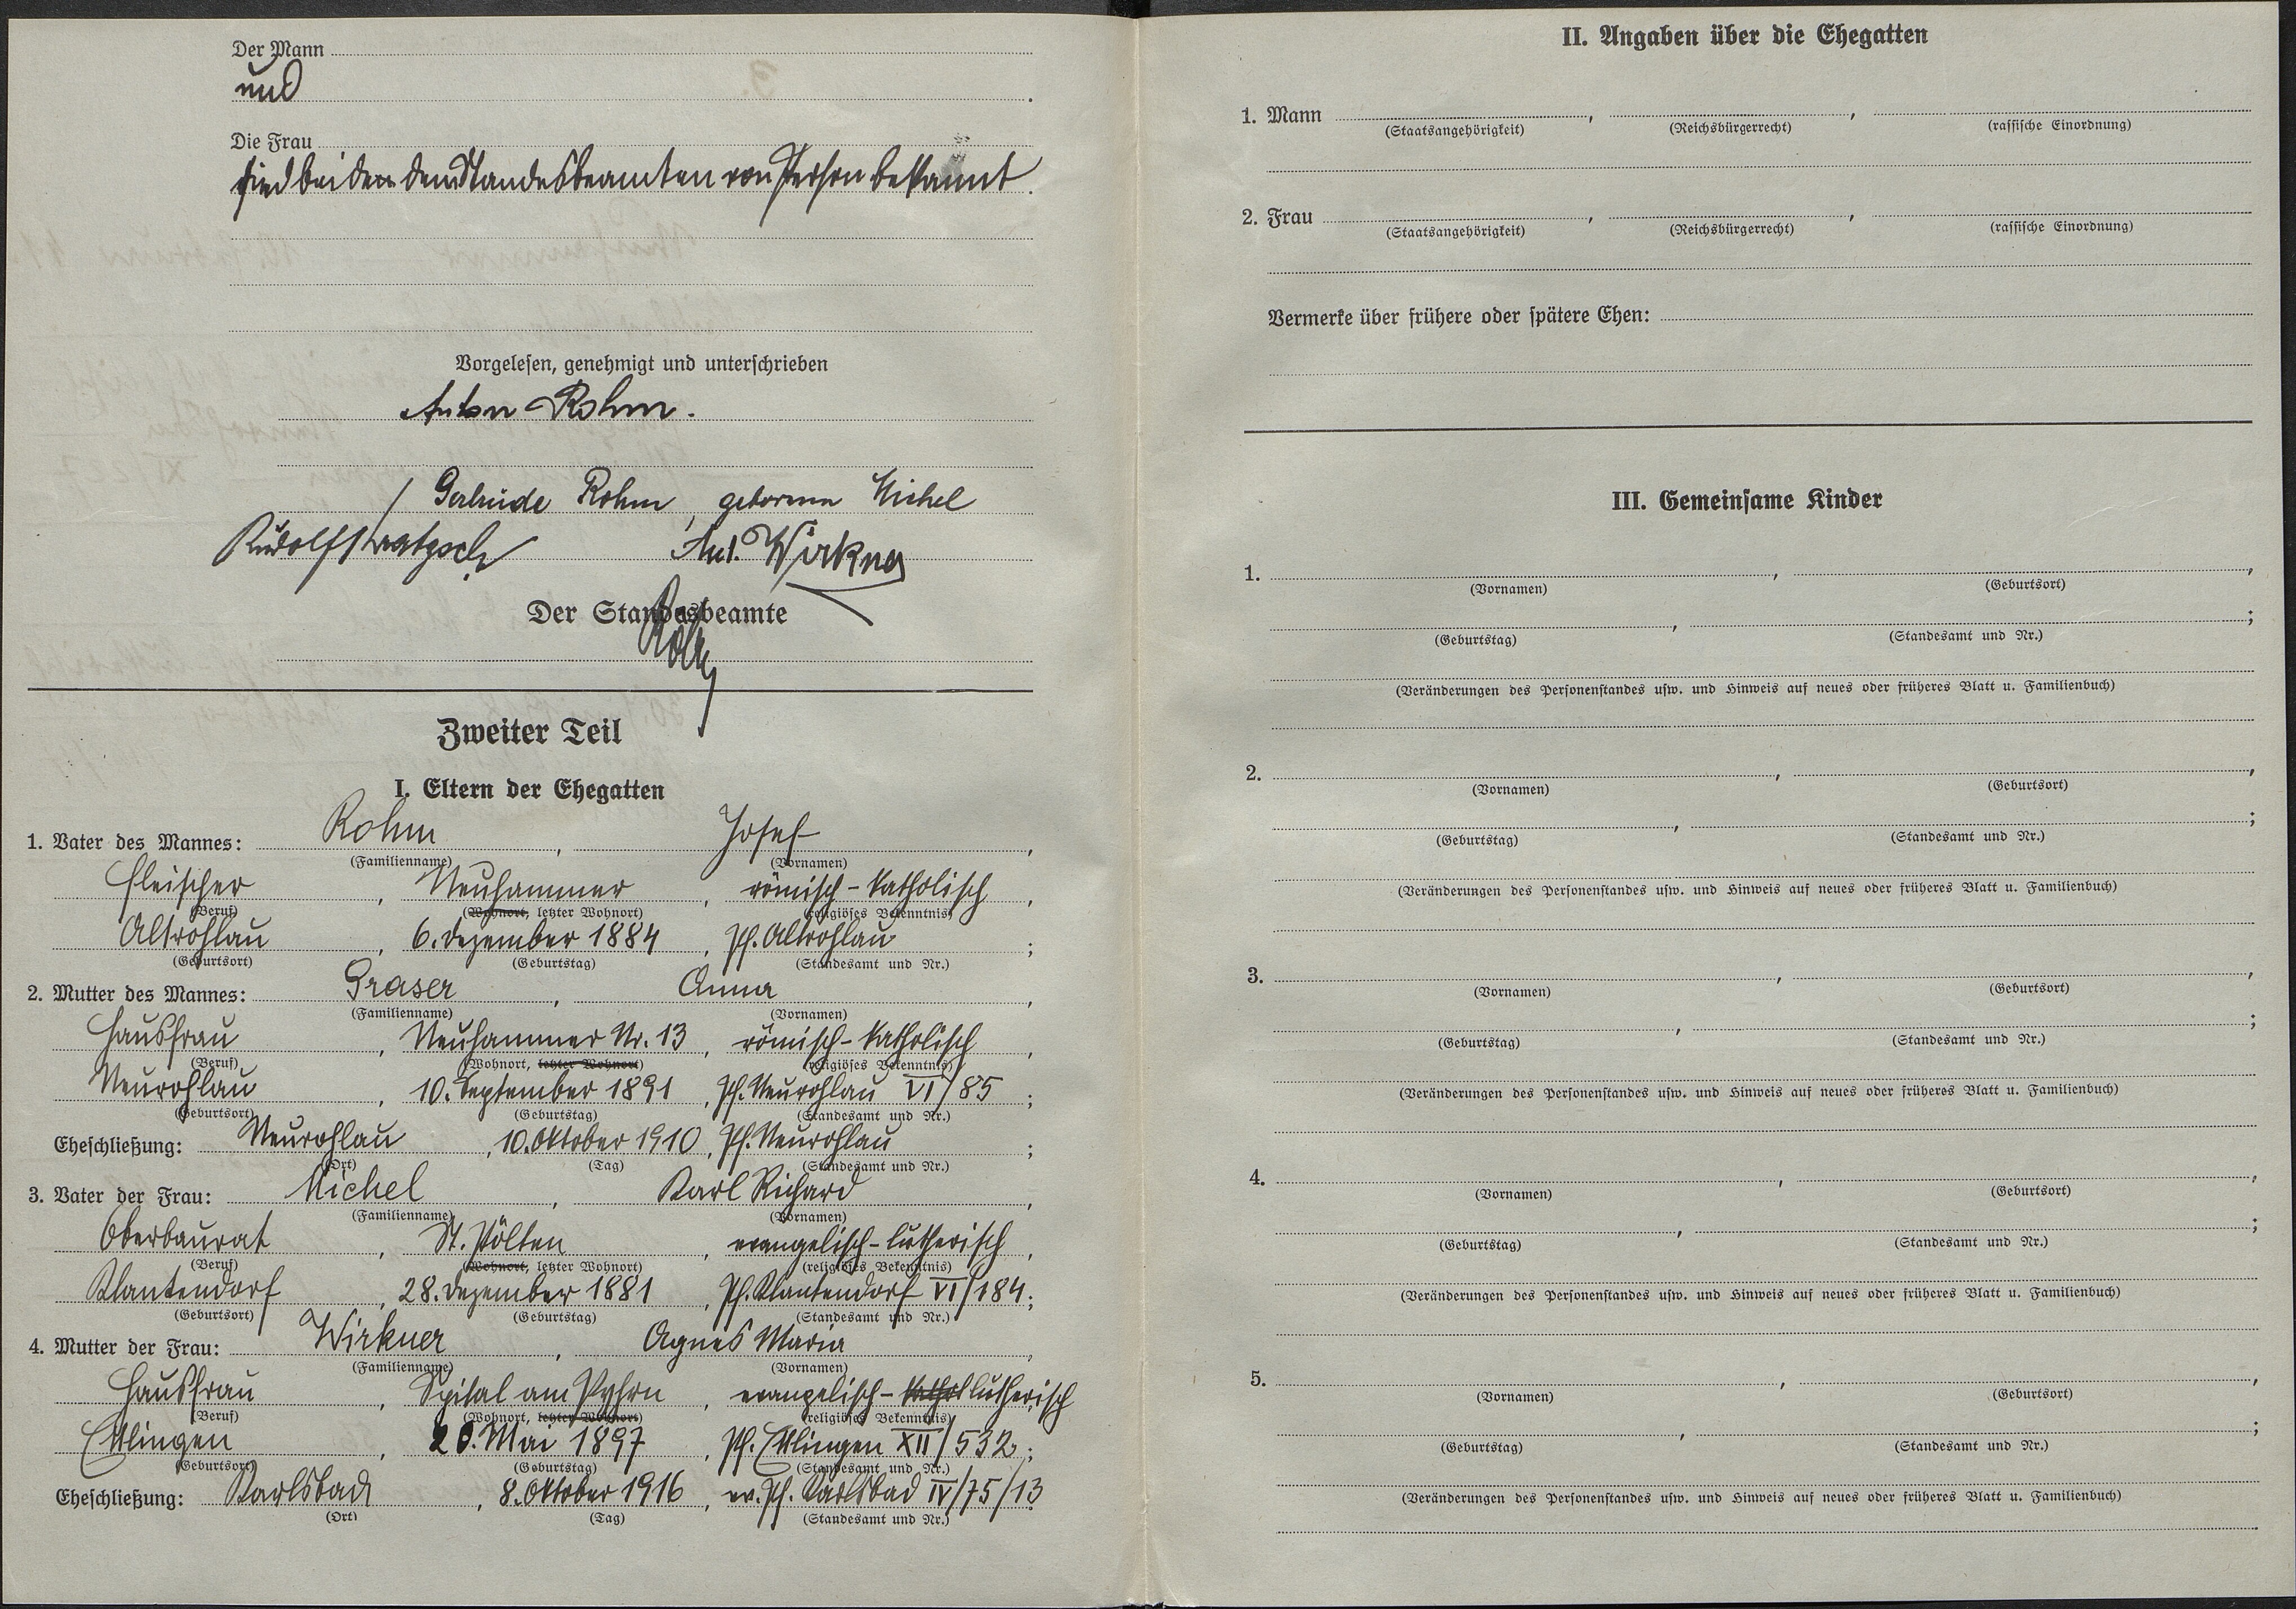 Der Mann
und
Die Frau
sind beiden dem Standesbeamten von Person bekannt.
Vorgelesen, genehmigt und unterschrieben
Anton Rohm.
Gertrude Rohm, geborene Michel
Rudolf Ant. Wirkner
Der Standesbeamte
Zweiter Teil
I. Eltern der Ehegatten
1. Vater des Mannes: Rohm, Josef,
(Familienname) (Vornamen)
Fleischer, Neuhammer, römisch-katholisch,
(Beruf) (Wohnort, letzter Wohnort) (religiöses Bekenntnis)
Altrohlau, 6. Dezember 1884, Pf. Altrohlau;
(Geburtsort) (Geburtstag) (Standesamt und Nr.)
2. Mutter des Mannes: Graser, Anna,
(Familienname) (Vornamen)
Hausfrau, Neuhammer Nr. 13, römisch-katholisch,
(Beruf) (Wohnort, letzter Wohnort) (religiöses Bekenntnis)
Neurohlau, 10. September 1891, Pf. Neurohlau VI/85;
(Geburtsort) (Geburtstag) (Standesamt und Nr.)
Eheschließung: Neurohlau, 10. Oktober 1910, Pf. Neurohlau;
(Ort) (Tag) (Standesamt und Nr.)
3. Vater der Frau: Michel, Karl Richard,
(Familienname) (Vornamen)
Oberbaurat, St. Pölten, evangelisch-lutherisch,
(Beruf) (Wohnort, letzter Wohnort) (religiöses Bekenntnis)
Klantendorf, 28. Dezember 1881, Pf. Klantendorf VI/184;
(Geburtsort) (Geburtstag) (Standesamt und Nr.)
4. Mutter der Frau: Wirkner, Agnes Maria,
(Familienname) (Vornamen)
Hausfrau, Spital am Pyhrn, evangelisch-kathol lutherisch
(Beruf) (Wohnort, letzter Wohnort) (religiöses Bekenntnis)
Ettlingen, 20. Mai 1897, Pf. Ettlingen XII/532;
(Geburtsort) (Geburtstag) (Standesamt und Nr.)
Eheschließung: Karlsbad, 8. Oktober 1916, ev. Pf. Karlsbad IV/75/13
(Ort) (Tag) (Standesamt und Nr.)
II. Angaben über die Ehegatten
1. Mann , ,
(Staatsangehörigkeit) (Reichsbürgerrecht) (rassische Einordnung)
2. Frau , ,
(Staatsangehörigkeit) (Reichsbürgerrecht) (rassische Einordnung)
Vermerke über frühere oder spätere Ehen:
III. Gemeinsame Kinder
1. , ,
(Vornamen) (Geburtsort)
, ;
(Geburtstag) (Standesamt und Nr.)
(Veränderungen des Personenstandes usw. und Hinweis auf neues oder früheres Blatt u. Familienbuch)
2. , ,
(Vornamen) (Geburtsort)
, ;
(Geburtstag) (Standesamt und Nr.)
(Veränderungen des Personenstandes usw. und Hinweis auf neues oder früheres Blatt u. Familienbuch)
3. , ,
(Vornamen) (Geburtsort)
, ;
(Geburtstag) (Standesamt und Nr.)
(Veränderungen des Personenstandes usw. und Hinweis auf neues oder früheres Blatt u. Familienbuch)
4. , ,
(Vornamen) (Geburtsort)
, ;
(Geburtstag) (Standesamt und Nr.)
(Veränderungen des Personenstandes usw. und Hinweis auf neues oder früheres Blatt u. Familienbuch)
5. , ,
(Vornamen) (Geburtsort)
, ;
(Geburtstag) (Standesamt und Nr.)
(Veränderungen des Personenstandes usw. und Hinweis auf neues oder früheres Blatt u. Familienbuch)